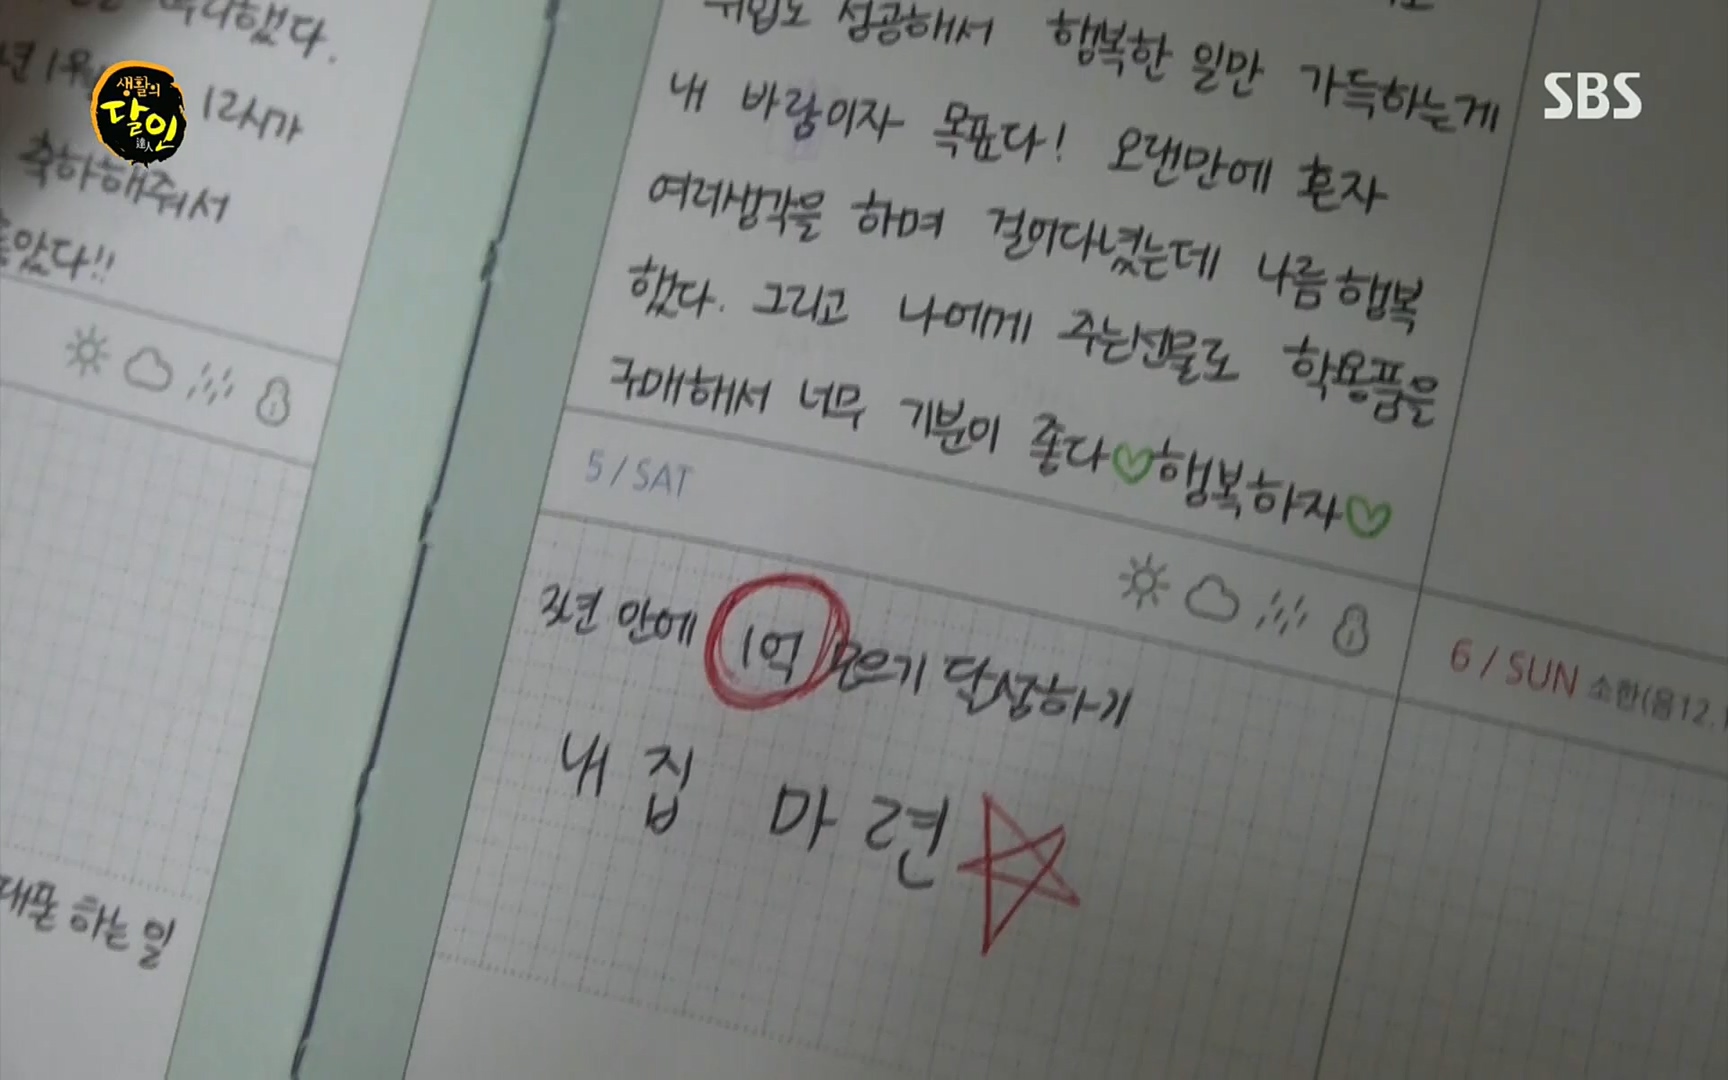 했다.
12시가
축하해줘서
좋았다!!
하는 일
생활의
달인
達人
SBS
취업도 성공해서 행복한 일만 가득하는게
내 바람이자 목표다! 오랜만에 혼자
여러생각을 하며 걸어다녔는데 나름 행복
했다. 그리고 나에게 주는선물로 학용품을
구매해서 너무 기분이 좋다♡행복하자♡
5 / SAT
안에 1억 모으기 달성하기
내 집 마련
6 / SUN 소한(음12.1